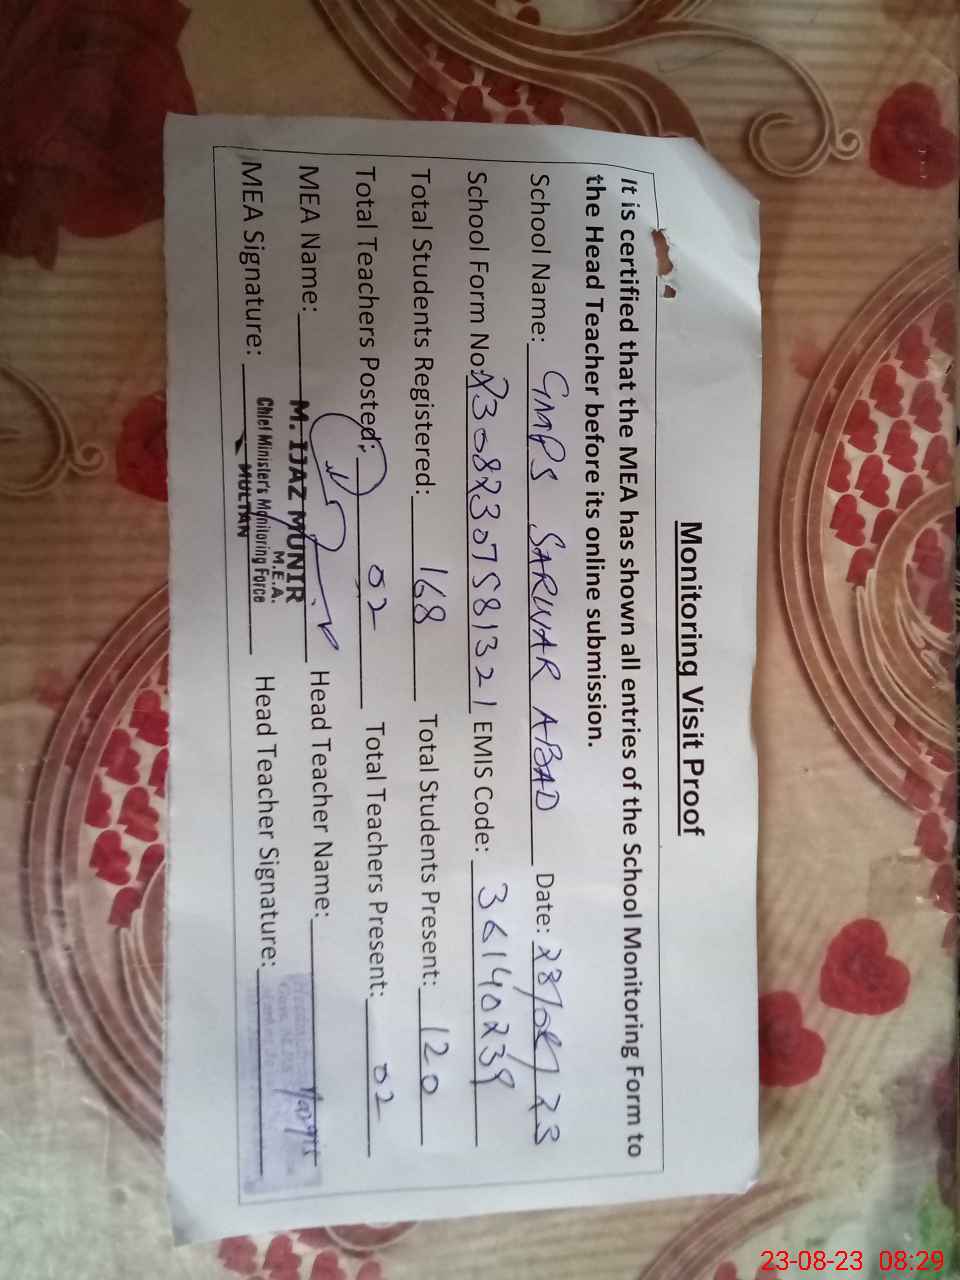 Monitoring Visit Proof
It is certified that the MEA has shown all entries of the School Monitoring Form to
the Head Teacher before its online submission.
School Name: GMPS SARWAR ABAD Date: 23/08/23
School Form No: 23082307581321 EMIS Code: 36140239
Total Students Registered: 168 Total Students Present: 120
Total Teachers Posted: 02 Total Teachers Present: 02
MEA Name: M. IJAZ MUNIR Head Teacher Name: Nargis
M.E.A.
MEA Signature: Chief Minister's Monitoring Force Head Teacher Signature:
MULTAN
23-08-23 08:29